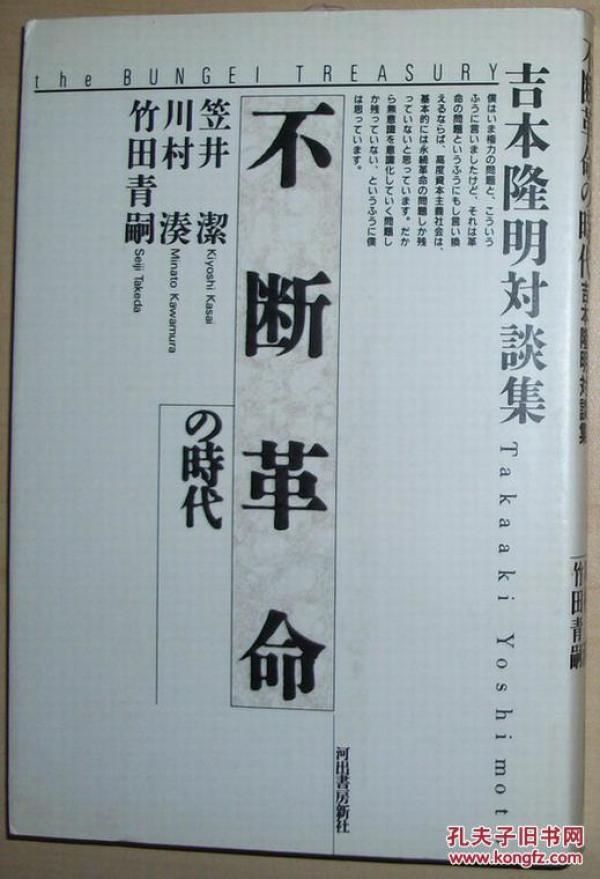 the BUNGEI TREASURY
吉本隆明対談集
Takaaki Yoshimot
僕はいま権力の問題と、こういう
ふうに言いましたけど、それは革
命の問題というふうにもし言い換
えるならば、高度資本主義社会は、
基本的には永続革命の問題しか残
っていないと思っています。だか
ら無意識を意識化していく問題し
か残っていない、というふうに僕
は思っています。
不断革命
の時代
笠井 潔
Kiyoshi Kasai
川村 湊
Minato Kawamura
竹田青嗣
Seiji Takeda
河出書房新社
不断革命の時代 吉本隆明対談集
竹田青嗣
孔夫子旧书网
www.kongfz.com